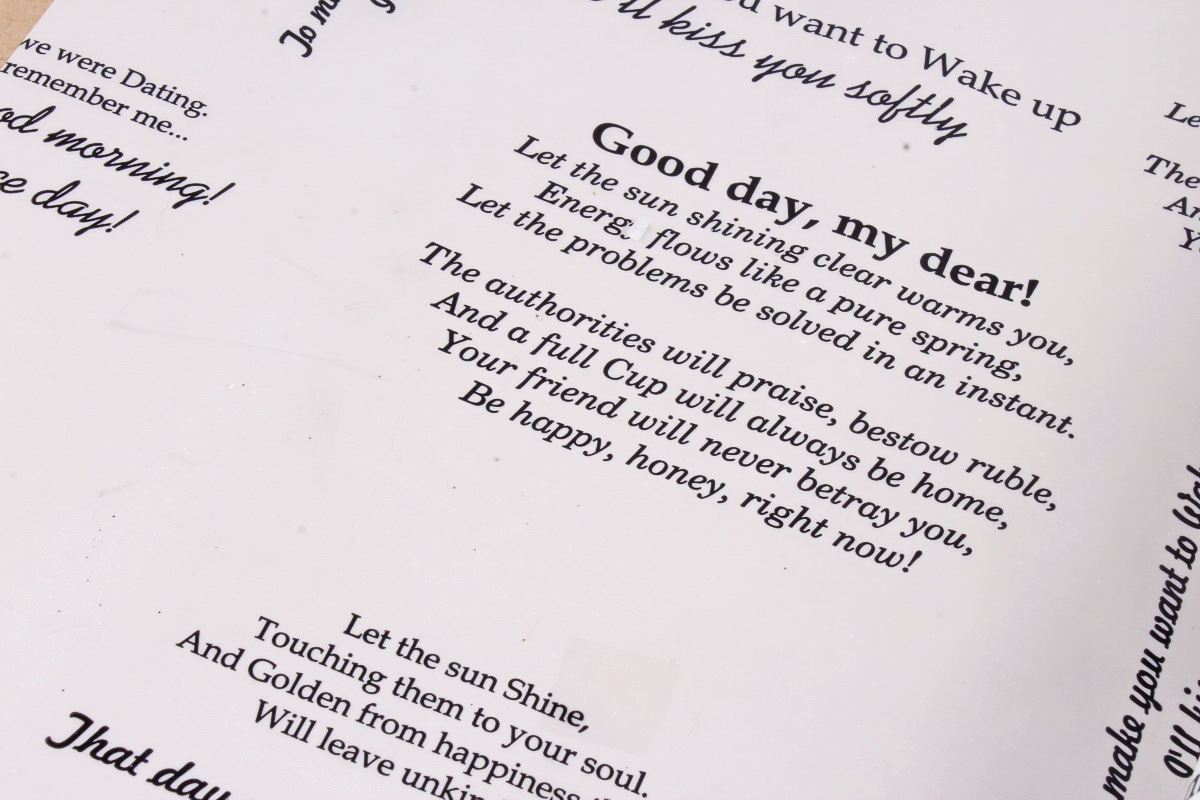 we were Dating.
remember me...
morning!
day!
Jo
want to Wake up
kiss you softly
Good day, my dear!
Let the sun shining clear warms you,
flows like a pure spring,
Let the problems be solved in an instant.
The authorities will praise, bestow ruble,
And a full Cup will always be home,
Your friend will never betray you,
Be happy, honey, right now!
Let the sun Shine,
Touching them to your soul.
And Golden from happiness
Will leave
That day
make you want to
I'll